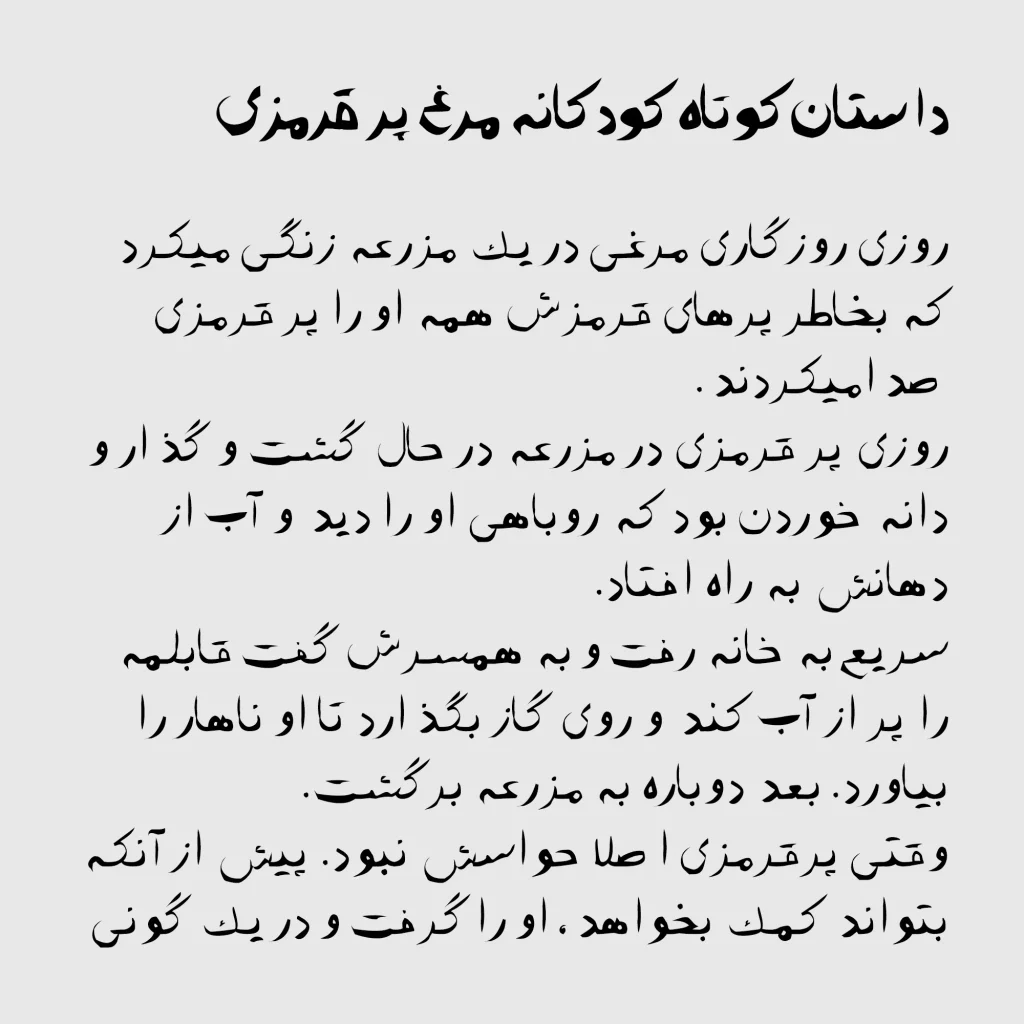 داستان کوتاه کودکانه مرغ پر قرمزی
روزی روزگاری مرغی در یک مزرعه زنگی میکرد
که بخاطر پرهای قرمزش همه او را پر قرمزی
صدا میکردند .
روزی پر قرمزی در مزرعه در حال گشت و گذار و
دانه خوردن بود که روباهی او را دید و آب از
دهانش به راه افتاد.
سریع به خانه رفت و به همسرش گفت قابلمه
را پر از آب کند و روی گاز بگذارد تا او ناهار را
بیاورد. بعد دوباره به مزرعه برگشت.
وقتی پرقرمزی اصلا حواسش نبود. پیش از آنکه
بتواند کمک بخواهد، او را گرفت و در یک گونی